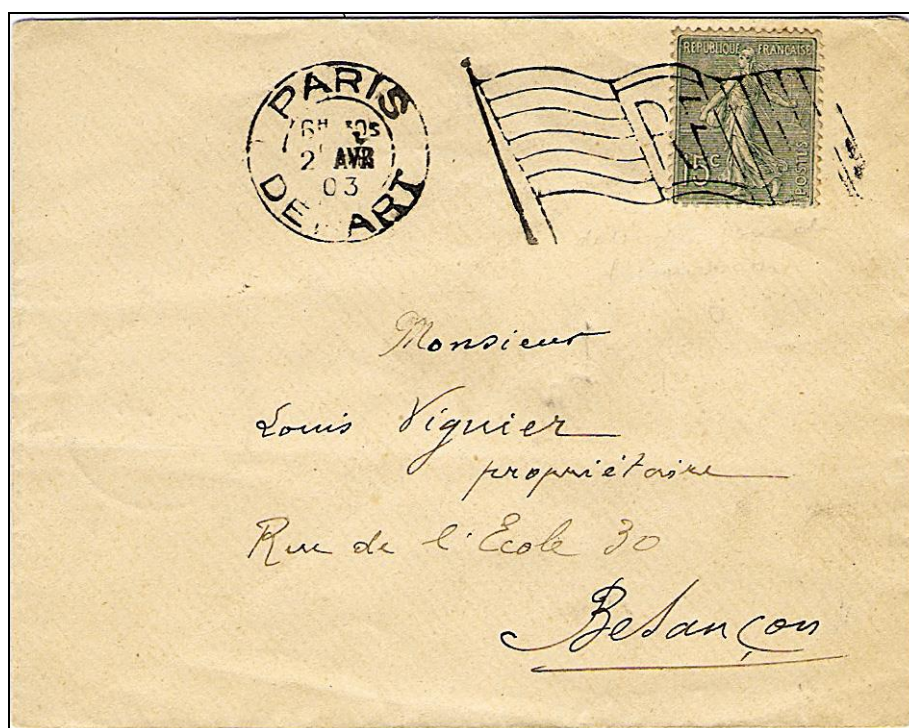 PARIS
AVR
03
DEPART
REPUBLIQUE FRANÇAISE
15c
POSTES
Monsieur
Louis Viguier
propriétaire
Rue de l'Ecole 30
Besançon